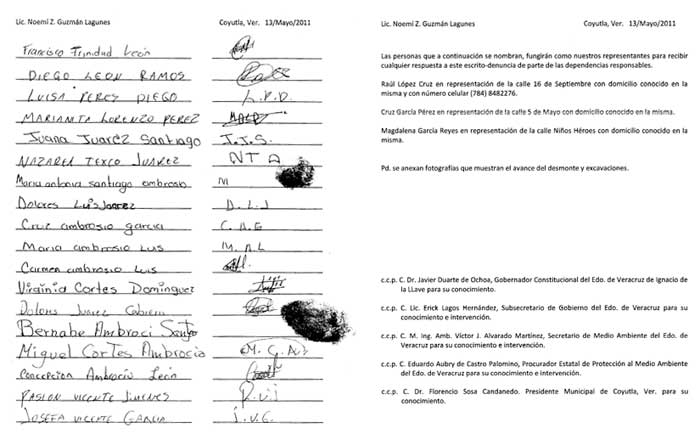 Lic. Noemí Z. Guzmán Lagunes Coyutla, Ver. 13/Mayo/2011
Francisco Trinidad León
DIEGO LEON RAMOS
LUISA PERES DIEGO L.P.D
MARIANITA LORENZO PEREZ
Juana Juarez Santiago J.J.S.
NAZAREA TEXCO JUAREZ NTA
Maria antonia santiago ambrosio M
Dolores Luis Juarez D.L.J
Cruz ambrosio garcia C.A.G
Maria ambrosio Luis M.A.L
Carmen ambrosio Luis
Virginia Cortes Dominguez
Dolores Juarez
Bernabe Ambroci
Miguel Cortes Ambrocio
Concepcion Ambrocio León
VICENTE Jimenes
JOSEFA VICENTE GARCIA J.V.G.
Lic. Noemí Z. Guzmán Lagunes Coyutla, Ver. 13/Mayo/2011
Las personas que a continuación se nombran, fungirán como nuestros representantes para recibir
cualquier respuesta a este escrito-denuncia de parte de las dependencias responsables.
Raúl López Cruz en representación de la calle 16 de Septiembre con domicilio conocido en la
misma y con número celular (784) 8482276.
Cruz García Pérez en representación de la calle 5 de Mayo con domicilio conocido en la misma.
Magdalena García Reyes en representación de la calle Niños Héroes con domicilio conocido en la
misma.
Pd. se anexan fotografías que muestran el avance del desmonte y excavaciones.
c.c.p. C. Dr. Javier Duarte de Ochoa, Gobernador Constitucional del Edo. de Veracruz de Ignacio de
la LLave para su conocimiento.
c.c.p. C. Lic. Erick Lagos Hernández, Subsecretario de Gobierno del Edo. de Veracruz para su
conocimiento e intervención.
c.c.p. C. M. Ing. Amb. Víctor J. Alvarado Martínez, Secretario de Medio Ambiente del Edo. de
Veracruz para su conocimiento e intervención.
c.c.p. C. Eduardo Aubry de Castro Palomino, Procurador Estatal de Protección al Medio Ambiente
del Edo. de Veracruz para su conocimiento e intervención.
c.c.p. C. Dr. Florencio Sosa Candanedo. Presidente Municipal de Coyutla, Ver. para su
conocimiento.